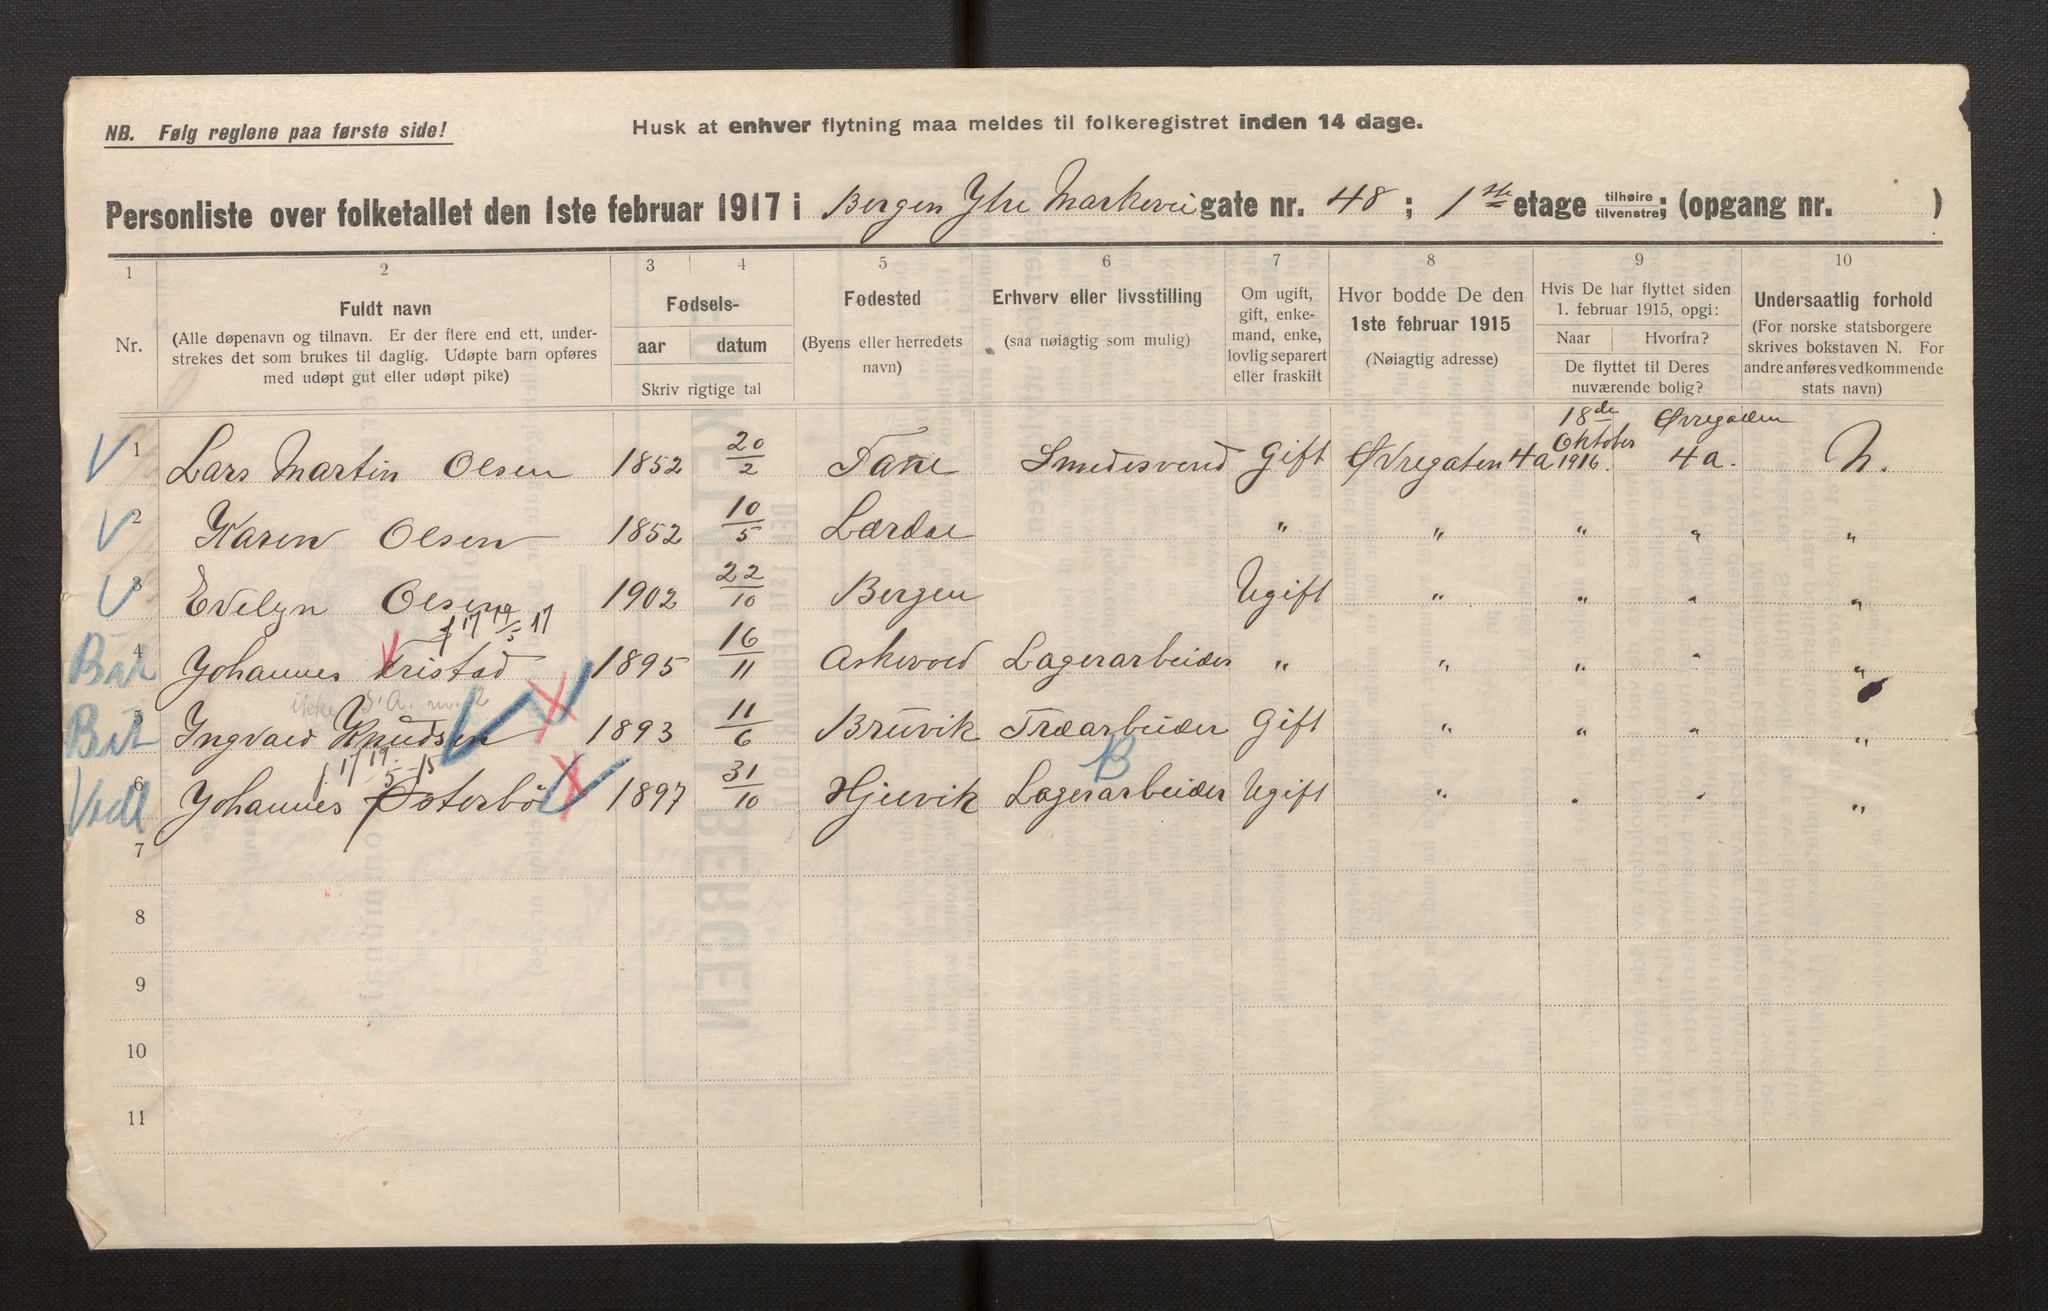 NB. Følg reglene paa første side!
Husk at enhver flytning maa meldes til folkeregistret inden 14 dage.
Personliste over folketallet den 1ste februar 1917 i Bergen Ytre Markevei gate nr. 48 ; 1ste etage tilhøire/tilvenstre; (opgang nr. )
1 2 3 4 5 6 7 8 9 10
Nr.
Fuldt navn
(Alle døpenavn og tilnavn. Er der flere end ett, under-
strekes det som brukes til daglig. Udøpte barn opføres
med udøpt gut eller udøpt pike)
Fødsels-
aar datum
Skriv rigtige tal
Fødested
(Byens eller herredets
navn)
Erhverv eller livsstilling
(saa nøiagtig som mulig)
Om ugift,
gift, enke-
mand, enke,
lovlig separert
eller fraskilt
Hvor bodde De den
1ste februar 1915
(Nøiagtig adresse)
Hvis De har flyttet siden
1. februar 1915, opgi:
Naar Hvorfra?
De flyttet til Deres
nuværende bolig?
Undersaatlig forhold
(For norske statsborgere
skrives bokstaven N. For
andre anføres vedkommende
stats navn)
V 1 Lars Martin Olsen 1852 20/2 Fane Smedesvend Gift Øvregaten 4a 18de Oktober 1916. Øvregaden 4a. N.
V 2 Karen Olsen 1852 10/5 Lærdal " " " " "
V 3 Evelyn Olsen 1902 22/10 Bergen Ugift " " " "
4 Johannes Tristad 1895 16/11 Askevold Lagerarbeider " " " " "
ikke S.A. nr. 2
5 Ingvald Knudsen 1893 11/6 Bruvik Træarbeider Gift " " " "
B
6 Johannes Østerbø 1897 31/10 Hjelvik Lagerarbeider Ugift " " " "
7
8
9
10
11